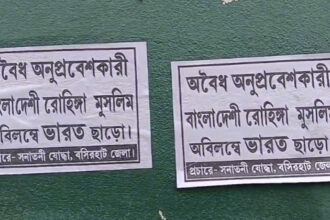 অবৈধ অনুপ্রবেশকারী
বাংলাদেশী রোহিঙ্গা মুসলিম
অবিলম্বে ভারত ছাড়ো।
প্রচারে- সনাতনী যোদ্ধা, বসিরহাট জেলা।
অবৈধ অনুপ্রবেশকারী
বাংলাদেশী রোহিঙ্গা মুসলিম
অবিলম্বে ভারত ছাড়ো।
প্রচারে- সনাতনী যোদ্ধা, বসিরহাট জেলা